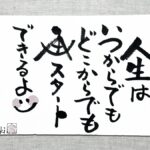 人生は
いつからでも
どこからでも
スタート
できるよ